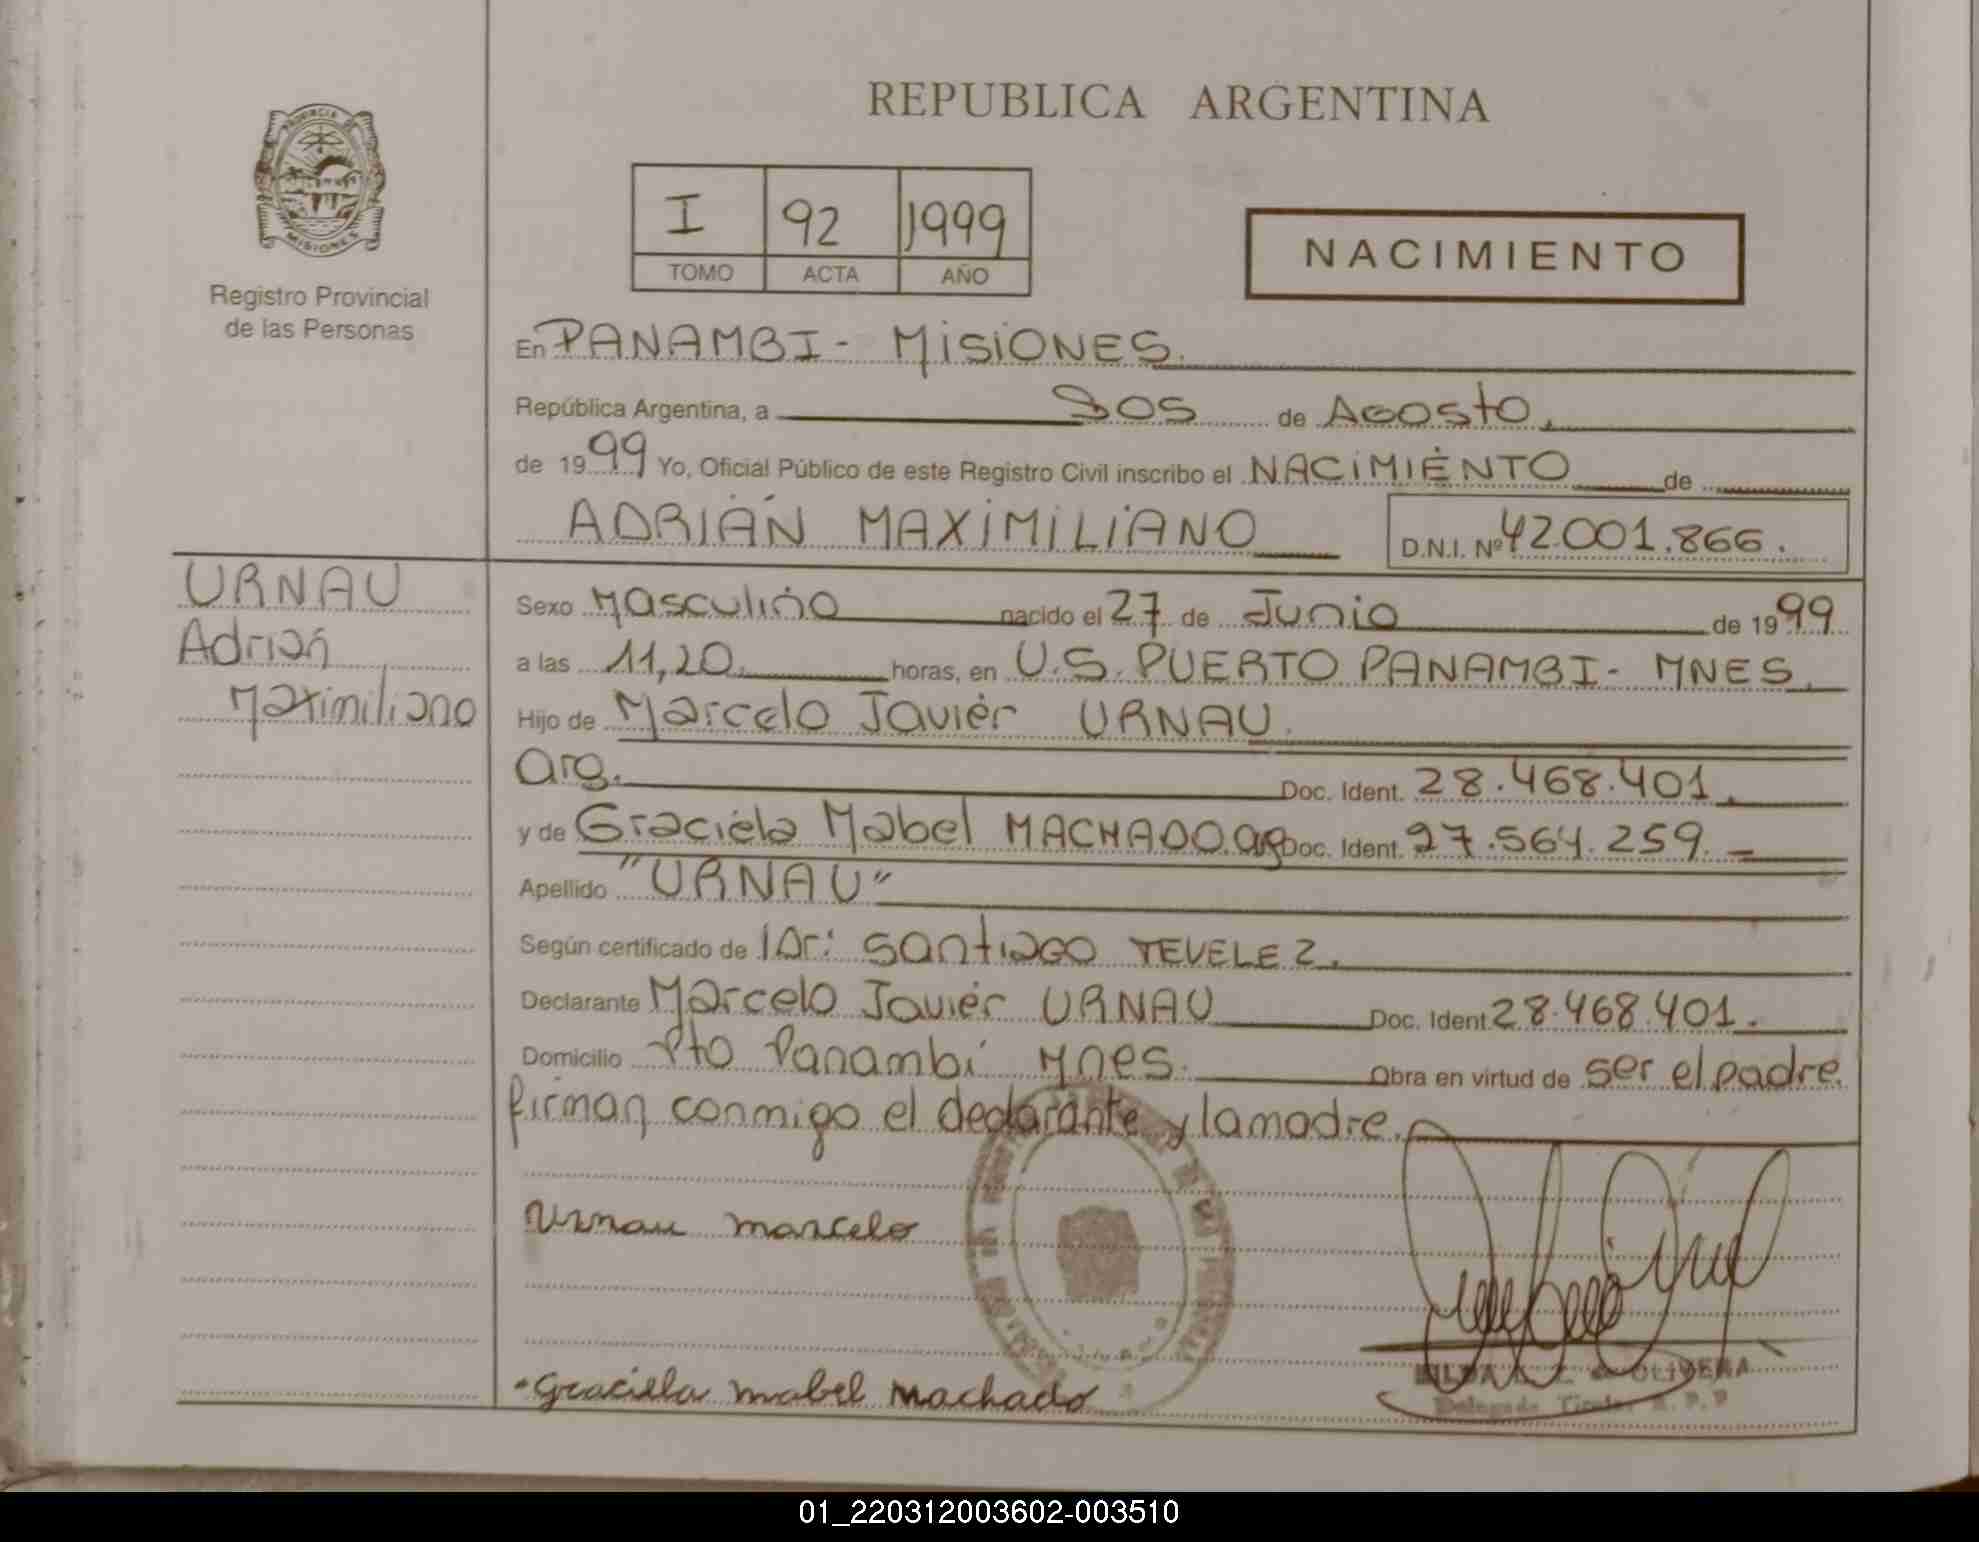 REPUBLICA ARGENTINA
PROVINCIA DE
MISIONES
Registro Provincial
de las Personas
I 92 1999
TOMO ACTA AÑO
NACIMIENTO
En PANAMBI - MISIONES.
República Argentina, a DOS de AGOSTO,
de 1999 Yo, Oficial Público de este Registro Civil inscribo el NACIMIENTO de
ADRIAN MAXIMILIANO D.N.I. Nº 42.001.866.
URNAU
Adrian
Maximiliano
Sexo Masculino nacido el 27 de Junio de 1999
a las 11,20. horas, en U.S. PUERTO PANAMBI - MNES.
Hijo de Marcelo Javier URNAU.
Arg. Doc. Ident. 28.468.401.
y de Graciela Mabel MACHADO. arg Doc. Ident. 27.564.259. -
Apellido "URNAU"
Según certificado de Dr: Santiago TEVELEZ.
Declarante Marcelo Javier URNAU Doc. Ident. 28.468.401.
Domicilio Pto Panambi Mnes. Obra en virtud de ser el padre.
firman conmigo el declarante y la madre.
Urnau marcelo
Graciela mabel Machado
de OLIVERA
Delegada Titular R. P. P
01_220312003602-003510